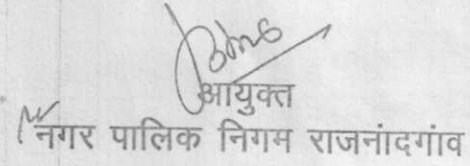 आयुक्त
नगर पालिक निगम राजनांदगांव